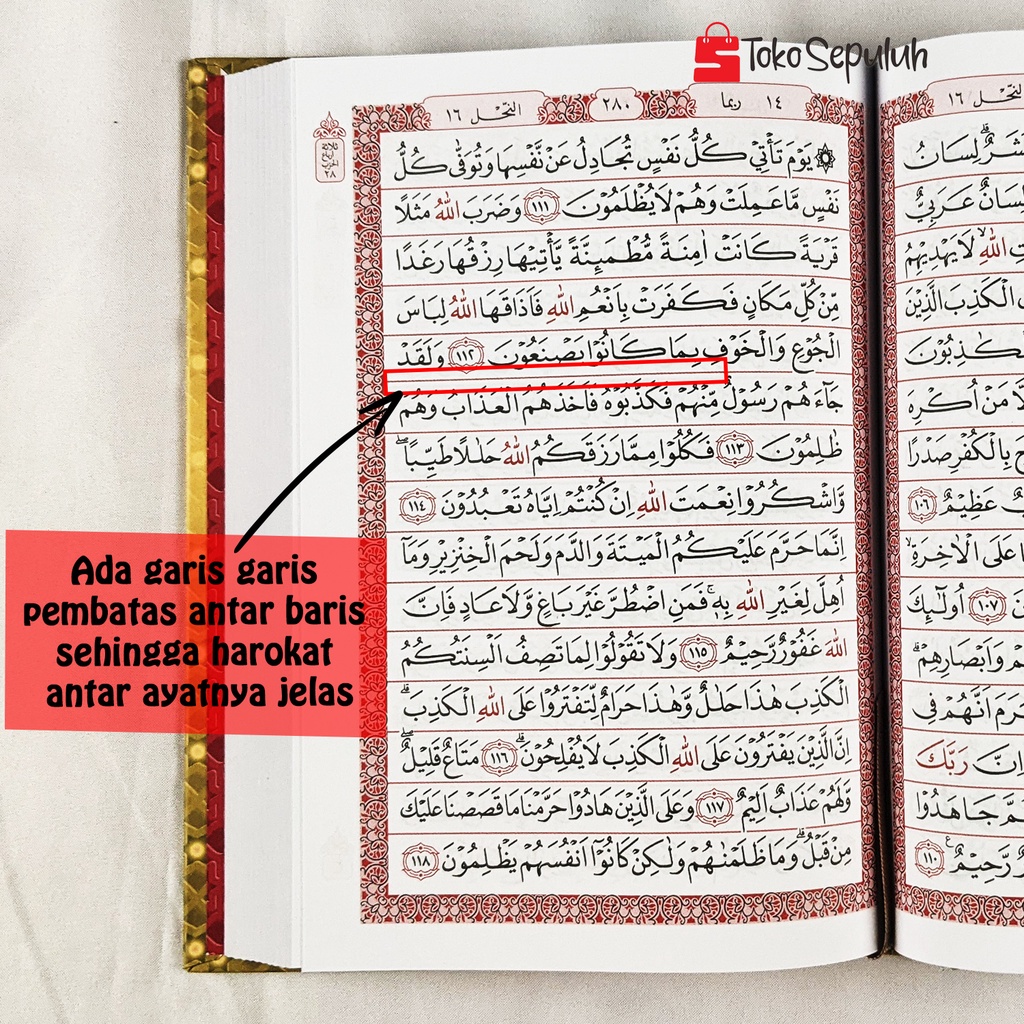 Toko Sepuluh
النّحل ١٦
٢٨٠
ربما ١٤
يَوْمَ تَأْتِيْ كُلُّ نَفْسٍ تُجَادِلُ عَنْ نَّفْسِهَا وَتُوَفّٰى كُلُّ
نَفْسٍ مَّا عَمِلَتْ وَهُمْ لَا يُظْلَمُوْنَ ١١١ وَضَرَبَ اللّٰهُ مَثَلًا
قَرْيَةً كَانَتْ اٰمِنَةً مُّطْمَىِٕنَّةً يَّأْتِيْهَا رِزْقُهَا رَغَدًا
مِّنْ كُلِّ مَكَانٍ فَكَفَرَتْ بِاَنْعُمِ اللّٰهِ فَاَذَاقَهَا اللّٰهُ لِبَاسَ
الْجُوْعِ وَالْخَوْفِ بِمَا كَانُوْا يَصْنَعُوْنَ ١١٢ وَلَقَدْ
جَاۤءَهُمْ رَسُوْلٌ مِّنْهُمْ فَكَذَّبُوْهُ فَاَخَذَهُمُ الْعَذَابُ وَهُمْ
ظٰلِمُوْنَ ١١٣ فَكُلُوْا مِمَّا رَزَقَكُمُ اللّٰهُ حَلٰلًا طَيِّبًاۖ
وَّاشْكُرُوْا نِعْمَتَ اللّٰهِ اِنْ كُنْتُمْ اِيَّاهُ تَعْبُدُوْنَ ١١٤
اِنَّمَا حَرَّمَ عَلَيْكُمُ الْمَيْتَةَ وَالدَّمَ وَلَحْمَ الْخِنْزِيْرِ وَمَآ
اُهِلَّ لِغَيْرِ اللّٰهِ بِهٖۚ فَمَنِ اضْطُرَّ غَيْرَ بَاغٍ وَّلَا عَادٍ فَاِنَّ
اللّٰهَ غَفُوْرٌ رَّحِيْمٌ ١١٥ وَلَا تَقُوْلُوْا لِمَا تَصِفُ اَلْسِنَتُكُمُ
الْكَذِبَ هٰذَا حَلٰلٌ وَّهٰذَا حَرَامٌ لِّتَفْتَرُوْا عَلَى اللّٰهِ الْكَذِبَۗ
اِنَّ الَّذِيْنَ يَفْتَرُوْنَ عَلَى اللّٰهِ الْكَذِبَ لَا يُفْلِحُوْنَۗ ١١٦ مَتَاعٌ قَلِيْلٌۖ
وَّلَهُمْ عَذَابٌ اَلِيْمٌ ١١٧ وَعَلَى الَّذِيْنَ هَادُوْا حَرَّمْنَا مَا قَصَصْنَا عَلَيْكَ
مِنْ قَبْلُۗ وَمَا ظَلَمْنٰهُمْ وَلٰكِنْ كَانُوْٓا اَنْفُسَهُمْ يَظْلِمُوْنَ ١١٨
Ada garis garis
pembatas antar baris
sehingga harokat
antar ayatnya jelas
١٦
لِسَانُ
لِسَانٌ عَرَبِيٌّ
اللّٰهِ لَا يَهْدِيْهِمُ
الْكَذِبَ الَّذِيْنَ
مَنْ اُكْرِهَ
بِالْكُفْرِ صَدْرًا
عَظِيْمٌ ١٠٦
عَلَى الْاٰخِرَةِۙ
١٠٧ اُولٰۤىِٕكَ
وَاَبْصَارِهِمْۗ
اَنَّهُمْ فِى
اِنَّ رَبَّكَ
جَاهَدُوْا
رَّحِيْمٌ ١١٠